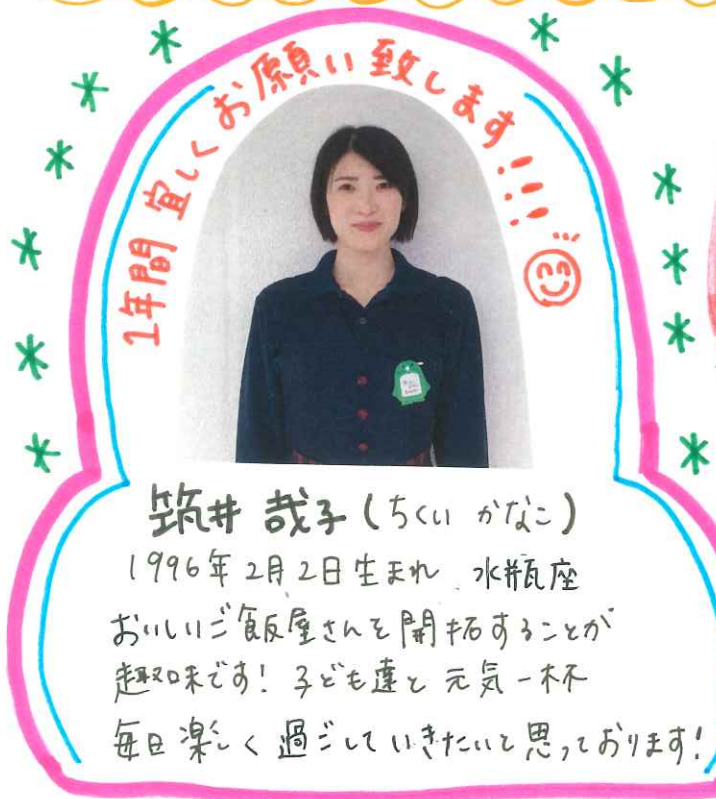 1年間 宜しくお願い致します!!!
筑井 哉子(ちくい かなこ)
1996年2月2日生まれ 水瓶座
おいしいご飯屋さんを開拓することが
趣味です! 子ども達と 元気一杯
毎日楽しく過ごしていきたいと思っております!